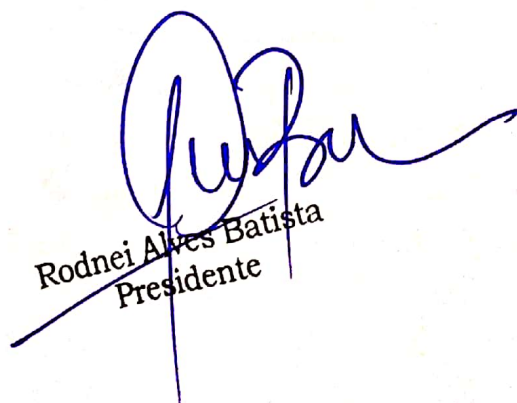 Rodnei Alves Batista
Presidente